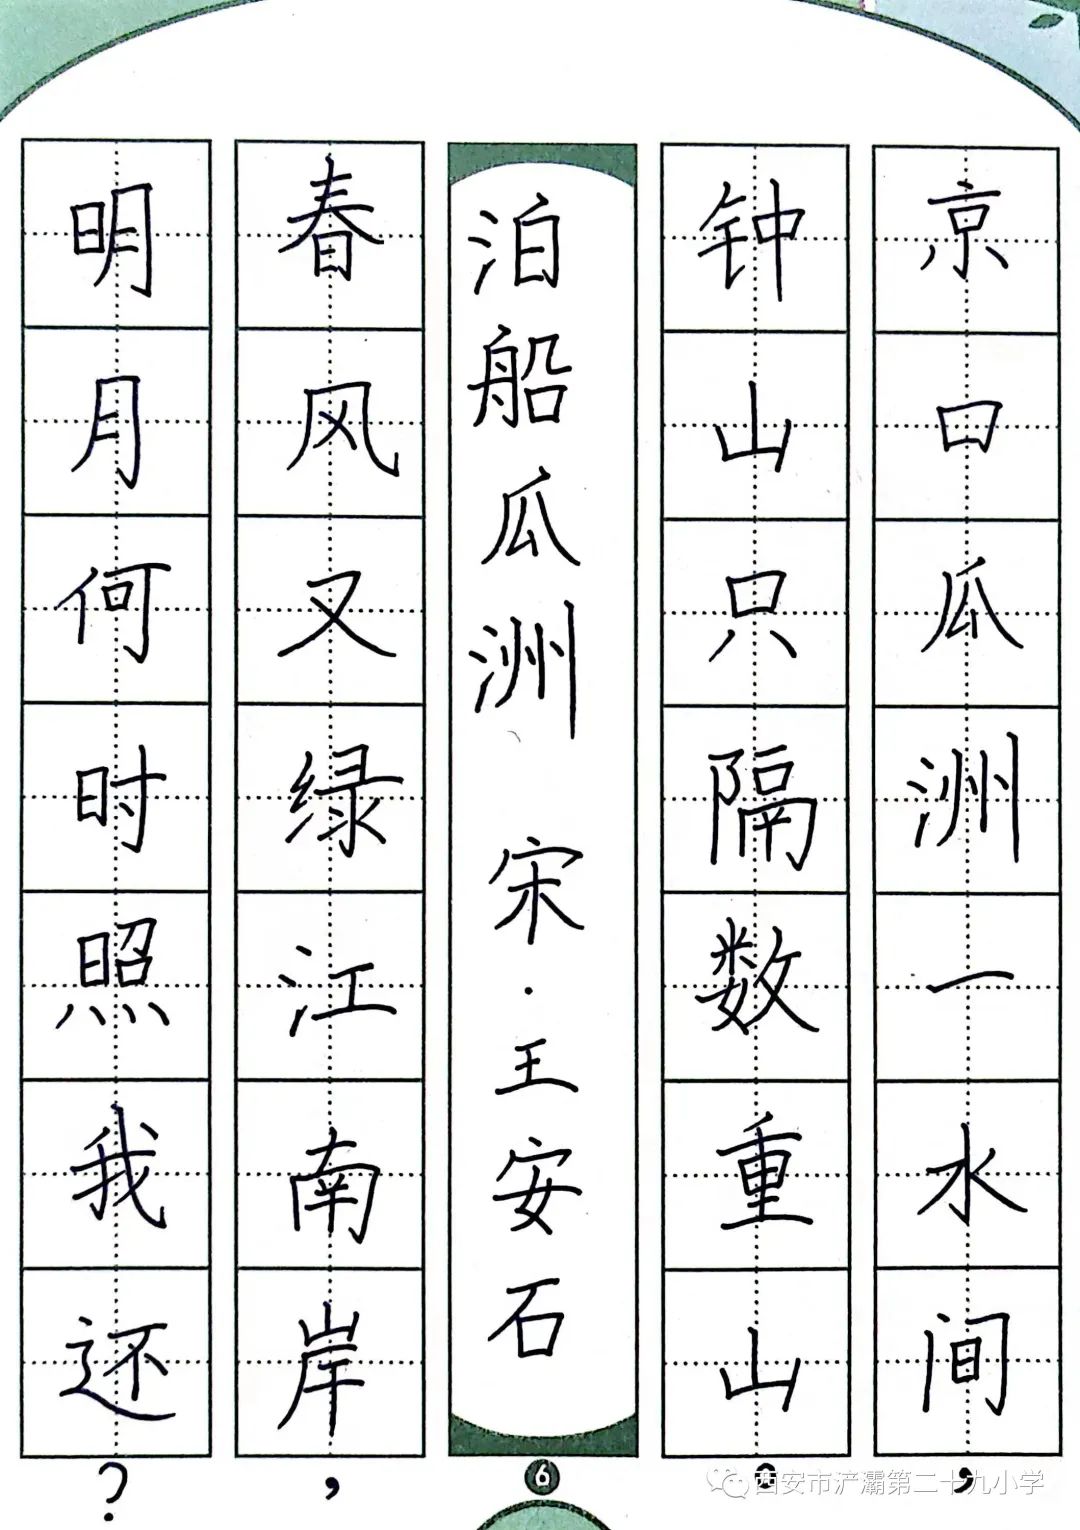 京口瓜洲一水间，
钟山只隔数重山。
泊船瓜洲 宋·王安石
春风又绿江南岸，
明月何时照我还？
6
西安市浐灞第二十九小学